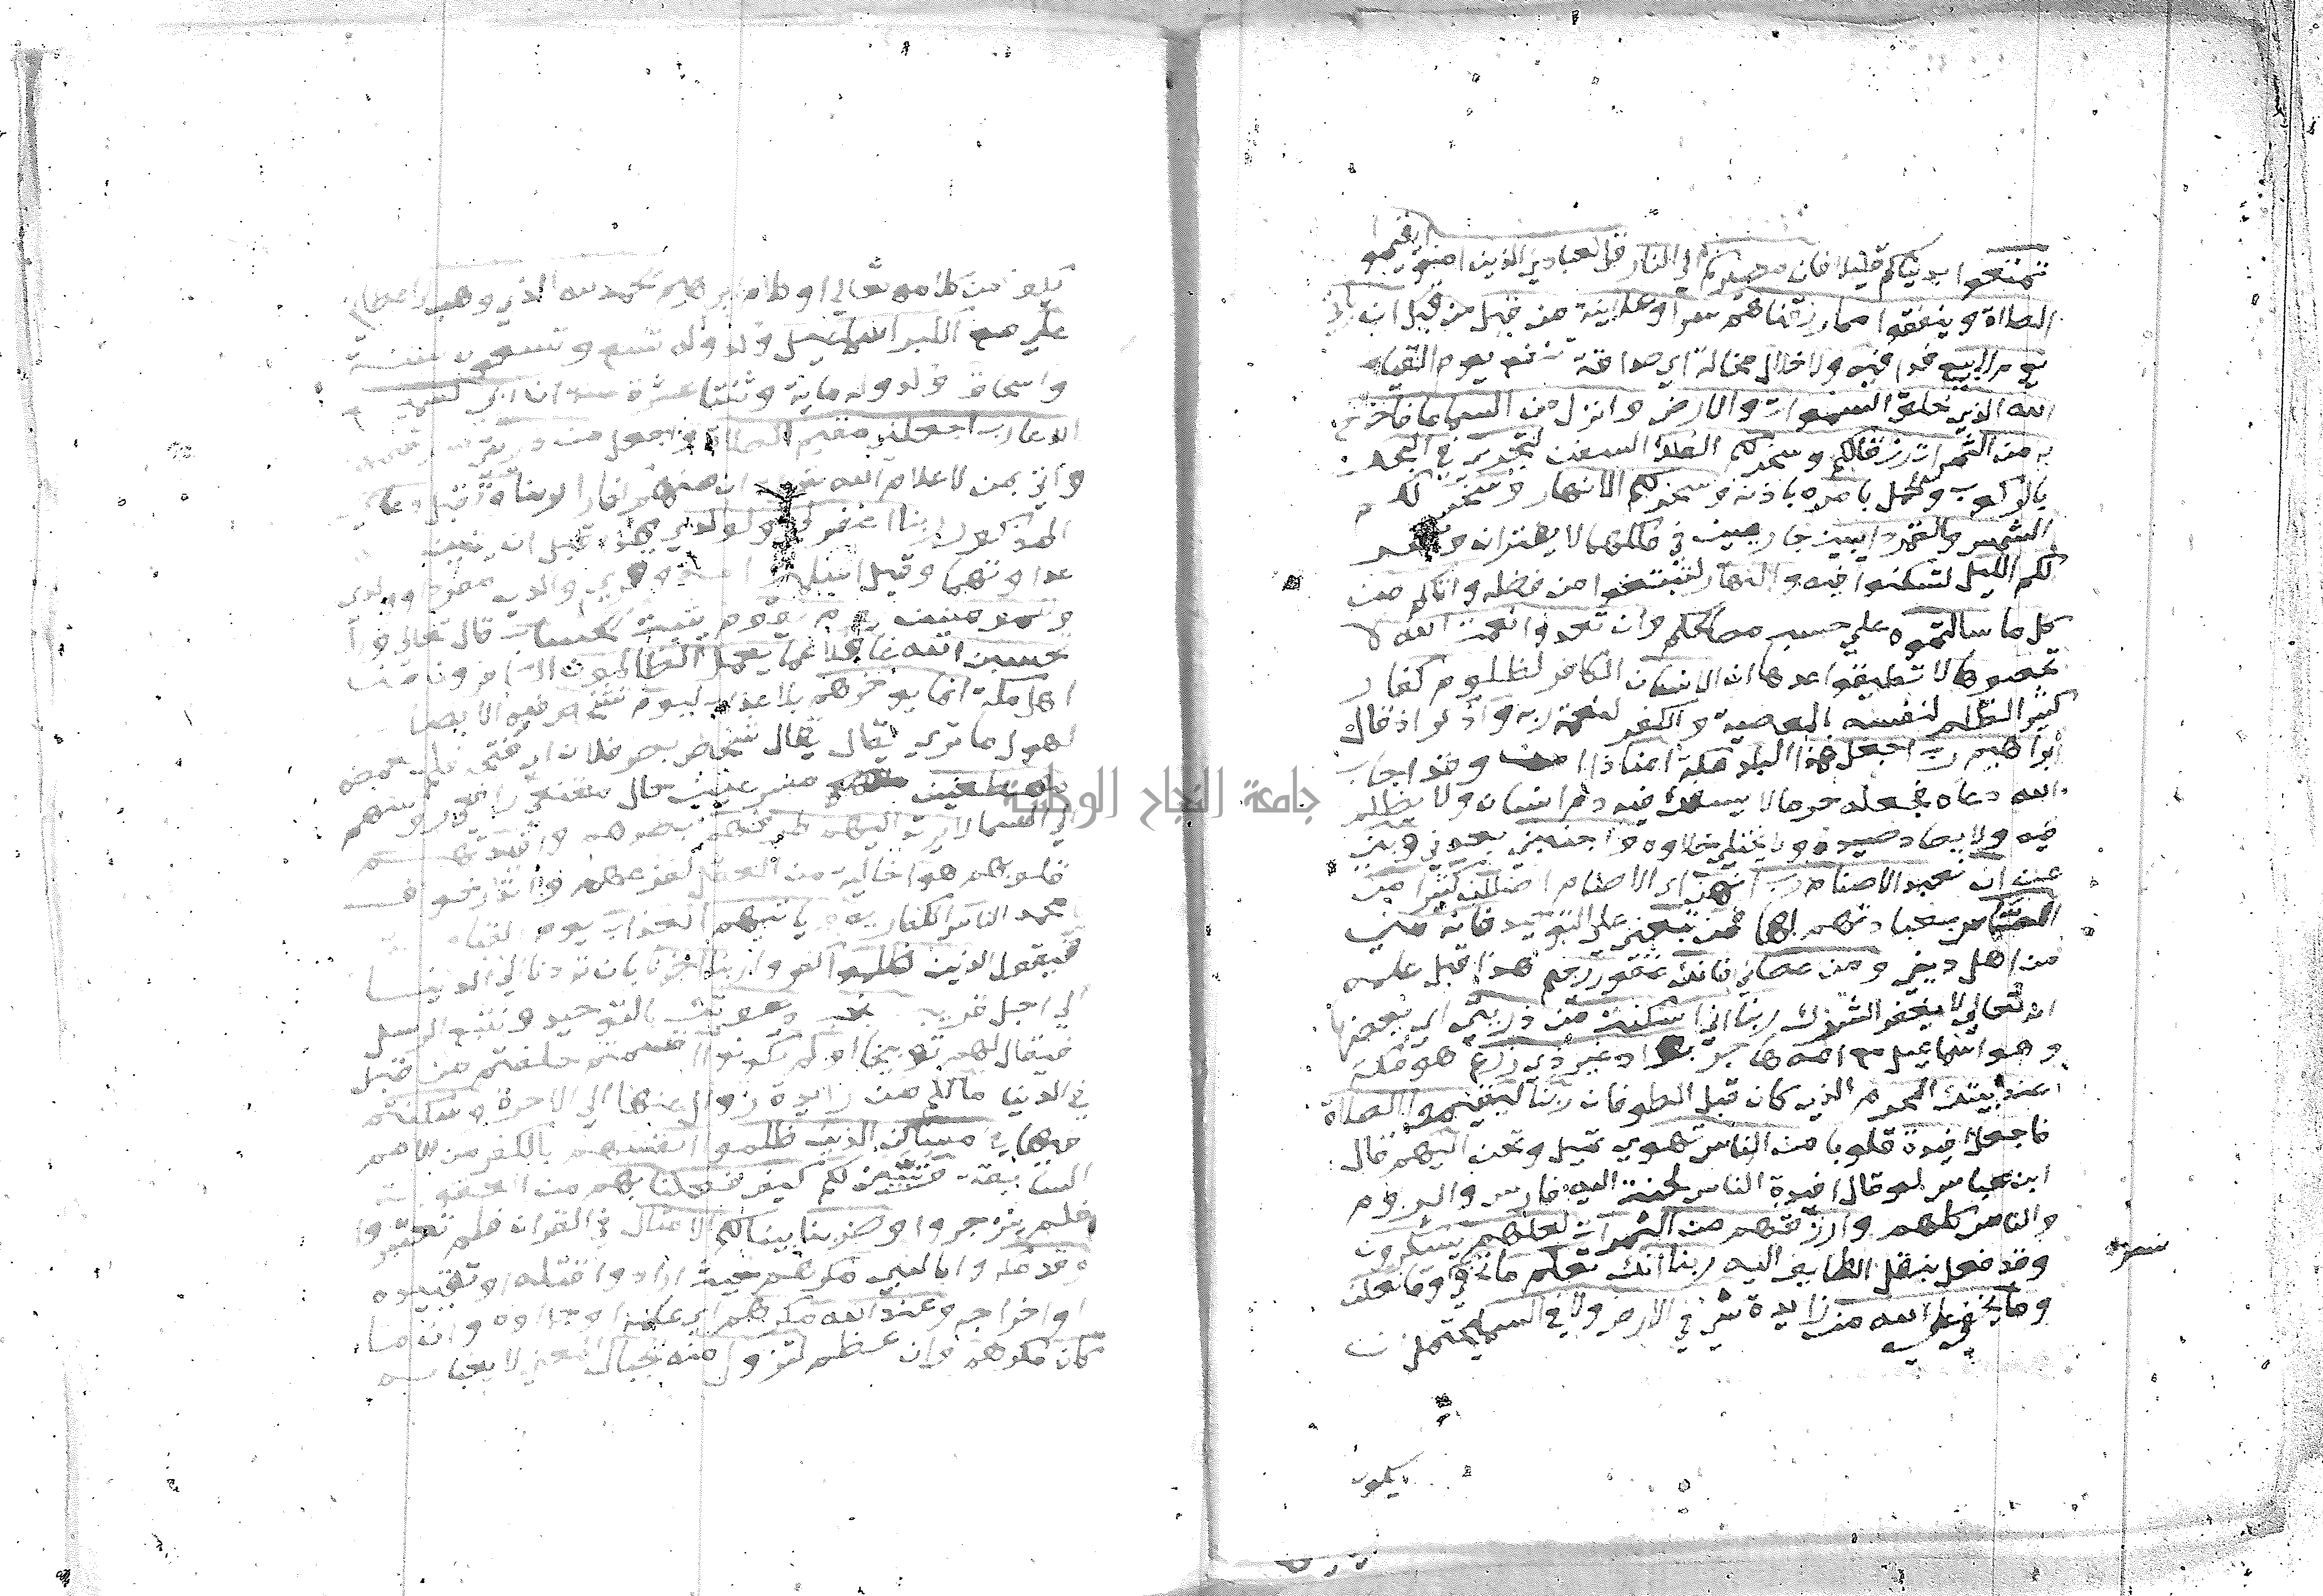 تمتعوا بدنياكم قليلا فان مصيركم الي النار قل لعبادي الذين امنوا يقيموا
الصلاة وينفقوا مما رزقناهم سرا وعلانية من قبل من قبل ان ياتي
يوم لا بيع فدا فيه ولا خلال مخالة اي صداقة تنفع يوم القيامة
الله الذي خلق السموات والارض وانزل من السما ما فاخرج
به من الثمرات رزقا لكم وسخر لكم الفلك السفن لتجري في البحر
بالركوب والحمل بامره باذنه وسخر لكم الانهار وسخر لكم
الشمس والقمر دايبين جاريين في فلكهما لا يفتران وسخر
لكم الليل لتسكنوا فيه والنهار لتبتغوا من فضله واتاكم من
كل ما سالتموه علي حسب مصالحكم وان تعدوا نعمت الله لا
تحصوها لا تطيقوا عدها ان الانسان الكافر لظلوم كفار
كثير الظلم لنفسه بالمعصية والكفر لنعمة ربه واذكر اذ قال
ابراهيم رب اجعل هذا البلد مكة امنا ذا امن وقد اجاب
الله دعاه فجعله حرما لا يسفك فيه دم انسان ولا يظلم
فيه ولا يصاد صيده ولا يختلي خلاوه واجنبني بعدني وبني
عن ان نعبد الاصنام رب انهن اي الاصنام اضللن كثيرا من
الناس بعبادتهم لها فمن تبعني علي التوحيد فانه مني
من اهل ديني ومن عصاني فانك غفور رحيم هذا قبل علمه
انه تعالي لا يغفر الشرك ربنا اني اسكنت من ذريتي اي بعضها
وهو اسماعيل مع امه هاجر بواد غير ذي زرع هو مكة
عند بيتك المحرم الذي كان قبل الطوفان ربنا ليقيموا الصلاة
فاجعل افيدة قلوبا من الناس تهوي تميل وتحن اليهم قال
ابن عباس لو قال افيدة الناس لحنت اليه فارس والروم
والناس كلهم وارزقهم من الثمرات لعلهم يشكرون
وقد فعل بنقل الطايف اليه ربنا انك تعلم ما نخفي وما نعلن
وما يخفي علي الله من زايدة شي في الارض ولا في السما يحتمل ان
يكون
يكون من كلامه تعالي او كلام ابراهيم الحمد لله الذي وهب لي اعطاني
علي مع الكبر اسماعيل ولد وله تسع وتسعون سنة
واسحاق ولد وله ماية وثنتا عشرة سنة ان ربي لسميع
الدعا رب اجعلني مقيم الصلاة واجعل من ذريتي من يقيمها
واتي بمن لاعلام الله له ان منهم كفارا ربنا وتقبل دعاي
المذكور ربنا اغفر لي ولوالدي هذا قبل ان يتبين
عداوتهما وقيل اسلمت امه وقري والدي مفردا وولدي
وللمومنين يوم يقوم يثبت الحساب قال تعالي ولا
تحسبن الله غافلا عما يعمل الظالمون الكافرون من
اهل مكة انما يوخرهم بلا عذاب ليوم تشخص فيه الابصار
لهول ما تري يقال شخص بصر فلان اي فتحه فلم يغمضه
مهطعين مسرعين حال مقنعي رافعي روسهم
الي السما لا يرتد اليهم طرفهم بصرهم وافيدتهم
قلوبهم هوا خالية من العقل لفزعهم وانذر خوف
يا محمد الناس الكفار يوم ياتيهم العذاب يوم القيامة
فيقول الذين ظلموا كفروا ربنا اخرنا بان تردنا الي الدنيا
الي اجل قريب نجب دعوتك بالتوحيد ونتبع الرسل
فيقال لهم توبيخا اولم تكونوا اقسمتم حلفتم من قبل
في الدنيا ما لكم من زايدة زوال عنها الي الاخرة وسكنتم
فيها في مساكن الذين ظلموا انفسهم بالكفر من الامم
السابقة وتبين لكم كيف فعلنا بهم من العقوبة
فلم تنزجروا وضربنا بينا لكم الامثال في القران فلم تعتبروا
وقد مكروا بالنبي مكرهم حيث ارادوا قتله او تقييده
او اخراجه وعند الله مكرهم اي علمه او جزاوه وان ما
كان مكرهم وان عظم لتزول منه الجبال المعني لا يعبا به
جامعة النجاح الوطنية